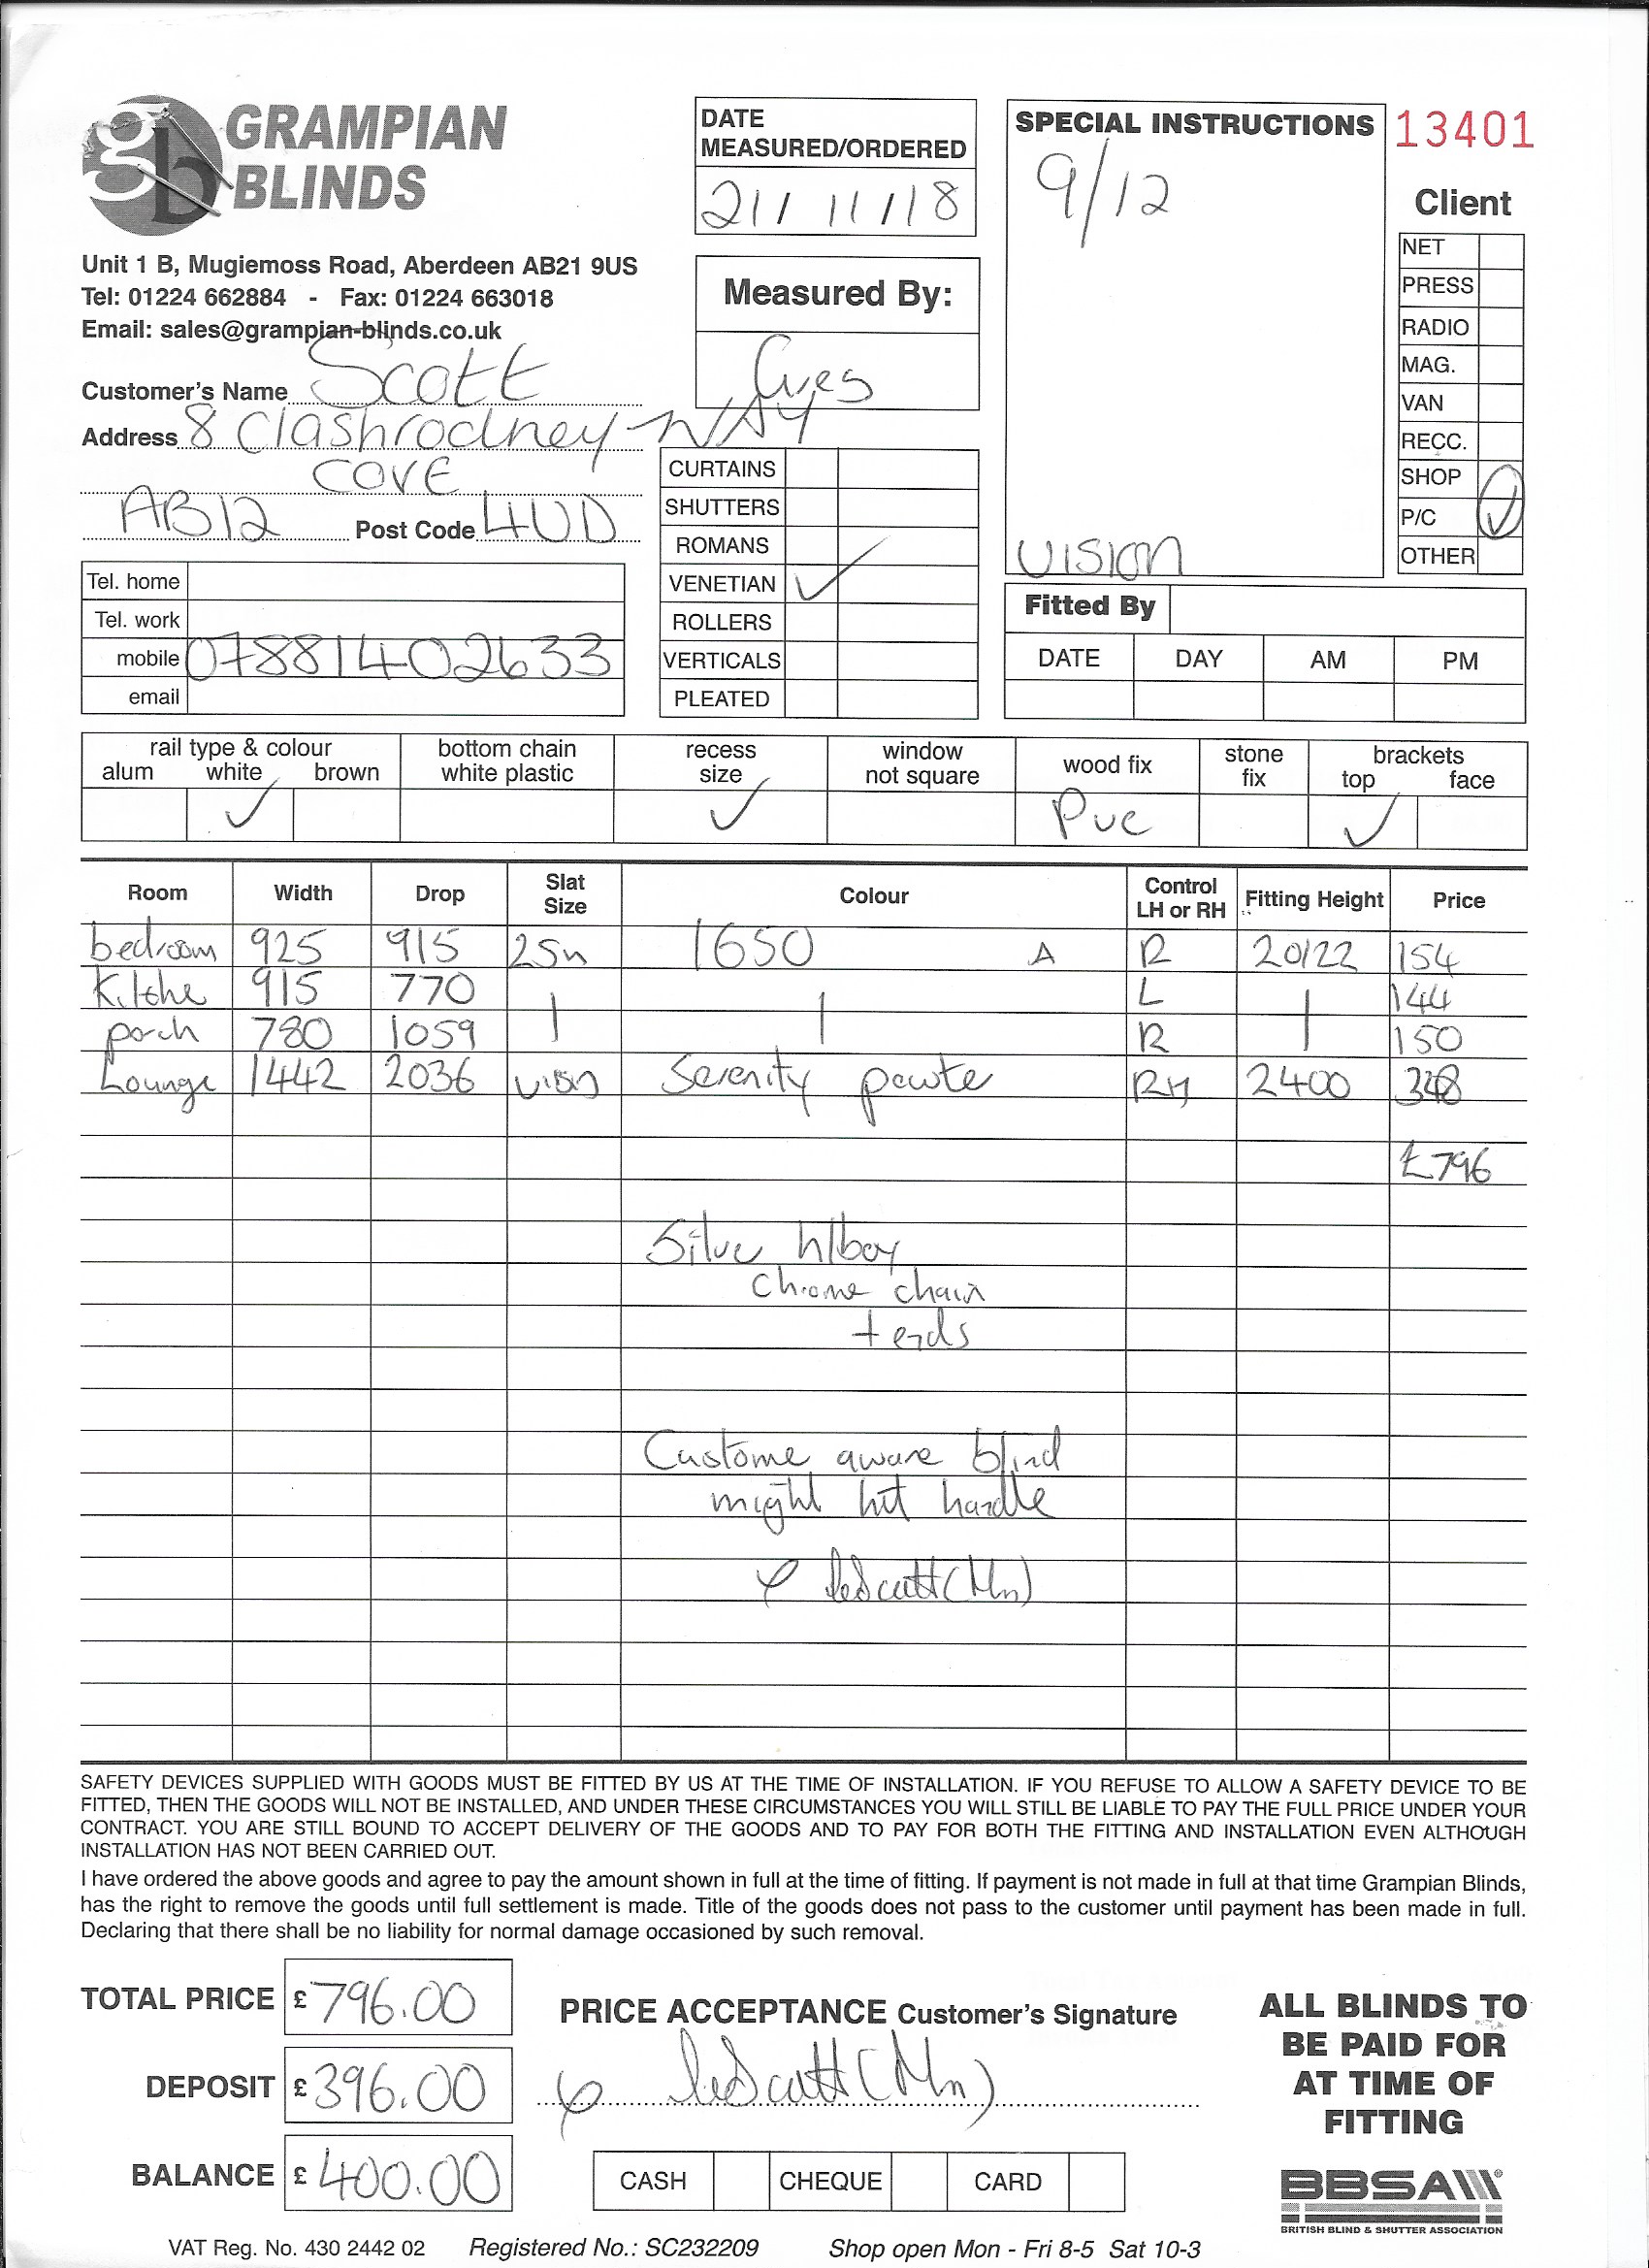 gb GRAMPIAN
BLINDS
Unit 1 B, Mugiemoss Road, Aberdeen AB21 9US
Tel: 01224 662884 - Fax: 01224 663018
Email: sales@grampian-blinds.co.uk
Customer's Name Scott
Address 8 Clashrodney WAY
COVE
AB12 Post Code 4UD
Tel. home
Tel. work
mobile 07881402633
email
DATE
MEASURED/ORDERED
21/11/18
Measured By:
CURTAINS
SHUTTERS
ROMANS
VENETIAN ✓
ROLLERS
VERTICALS
PLEATED
SPECIAL INSTRUCTIONS
9/12
VISION
13401
Client
NET
PRESS
RADIO
MAG.
VAN
RECC.
SHOP
P/C ✓
OTHER
Fitted By
DATE DAY AM PM
rail type & colour bottom chain recess window wood fix stone brackets
alum white brown white plastic size not square fix top face
✓ ✓ Pvc ✓
Room Width Drop Slat Size Colour Control LH or RH Fitting Height Price
bedroom 925 915 25n 1650 A R 20/22 154
Kitche 915 770 | | L | 144
porch 780 1059 R 150
Lounge 1442 2036 Vision Serenity pewte RH 2400 348
£796
Silve h/box
Chrome chain
+ ends
Custome aware blind
might hit handle
SAFETY DEVICES SUPPLIED WITH GOODS MUST BE FITTED BY US AT THE TIME OF INSTALLATION. IF YOU REFUSE TO ALLOW A SAFETY DEVICE TO BE
FITTED, THEN THE GOODS WILL NOT BE INSTALLED, AND UNDER THESE CIRCUMSTANCES YOU WILL STILL BE LIABLE TO PAY THE FULL PRICE UNDER YOUR
CONTRACT. YOU ARE STILL BOUND TO ACCEPT DELIVERY OF THE GOODS AND TO PAY FOR BOTH THE FITTING AND INSTALLATION EVEN ALTHOUGH
INSTALLATION HAS NOT BEEN CARRIED OUT.
I have ordered the above goods and agree to pay the amount shown in full at the time of fitting. If payment is not made in full at that time Grampian Blinds,
has the right to remove the goods until full settlement is made. Title of the goods does not pass to the customer until payment has been made in full.
Declaring that there shall be no liability for normal damage occasioned by such removal.
TOTAL PRICE £ 796.00
DEPOSIT £ 396.00
BALANCE £ 400.00
PRICE ACCEPTANCE Customer's Signature
CASH CHEQUE CARD
ALL BLINDS TO
BE PAID FOR
AT TIME OF
FITTING
BBSA
BRITISH BLIND & SHUTTER ASSOCIATION
VAT Reg. No. 430 2442 02 Registered No.: SC232209 Shop open Mon - Fri 8-5 Sat 10-3